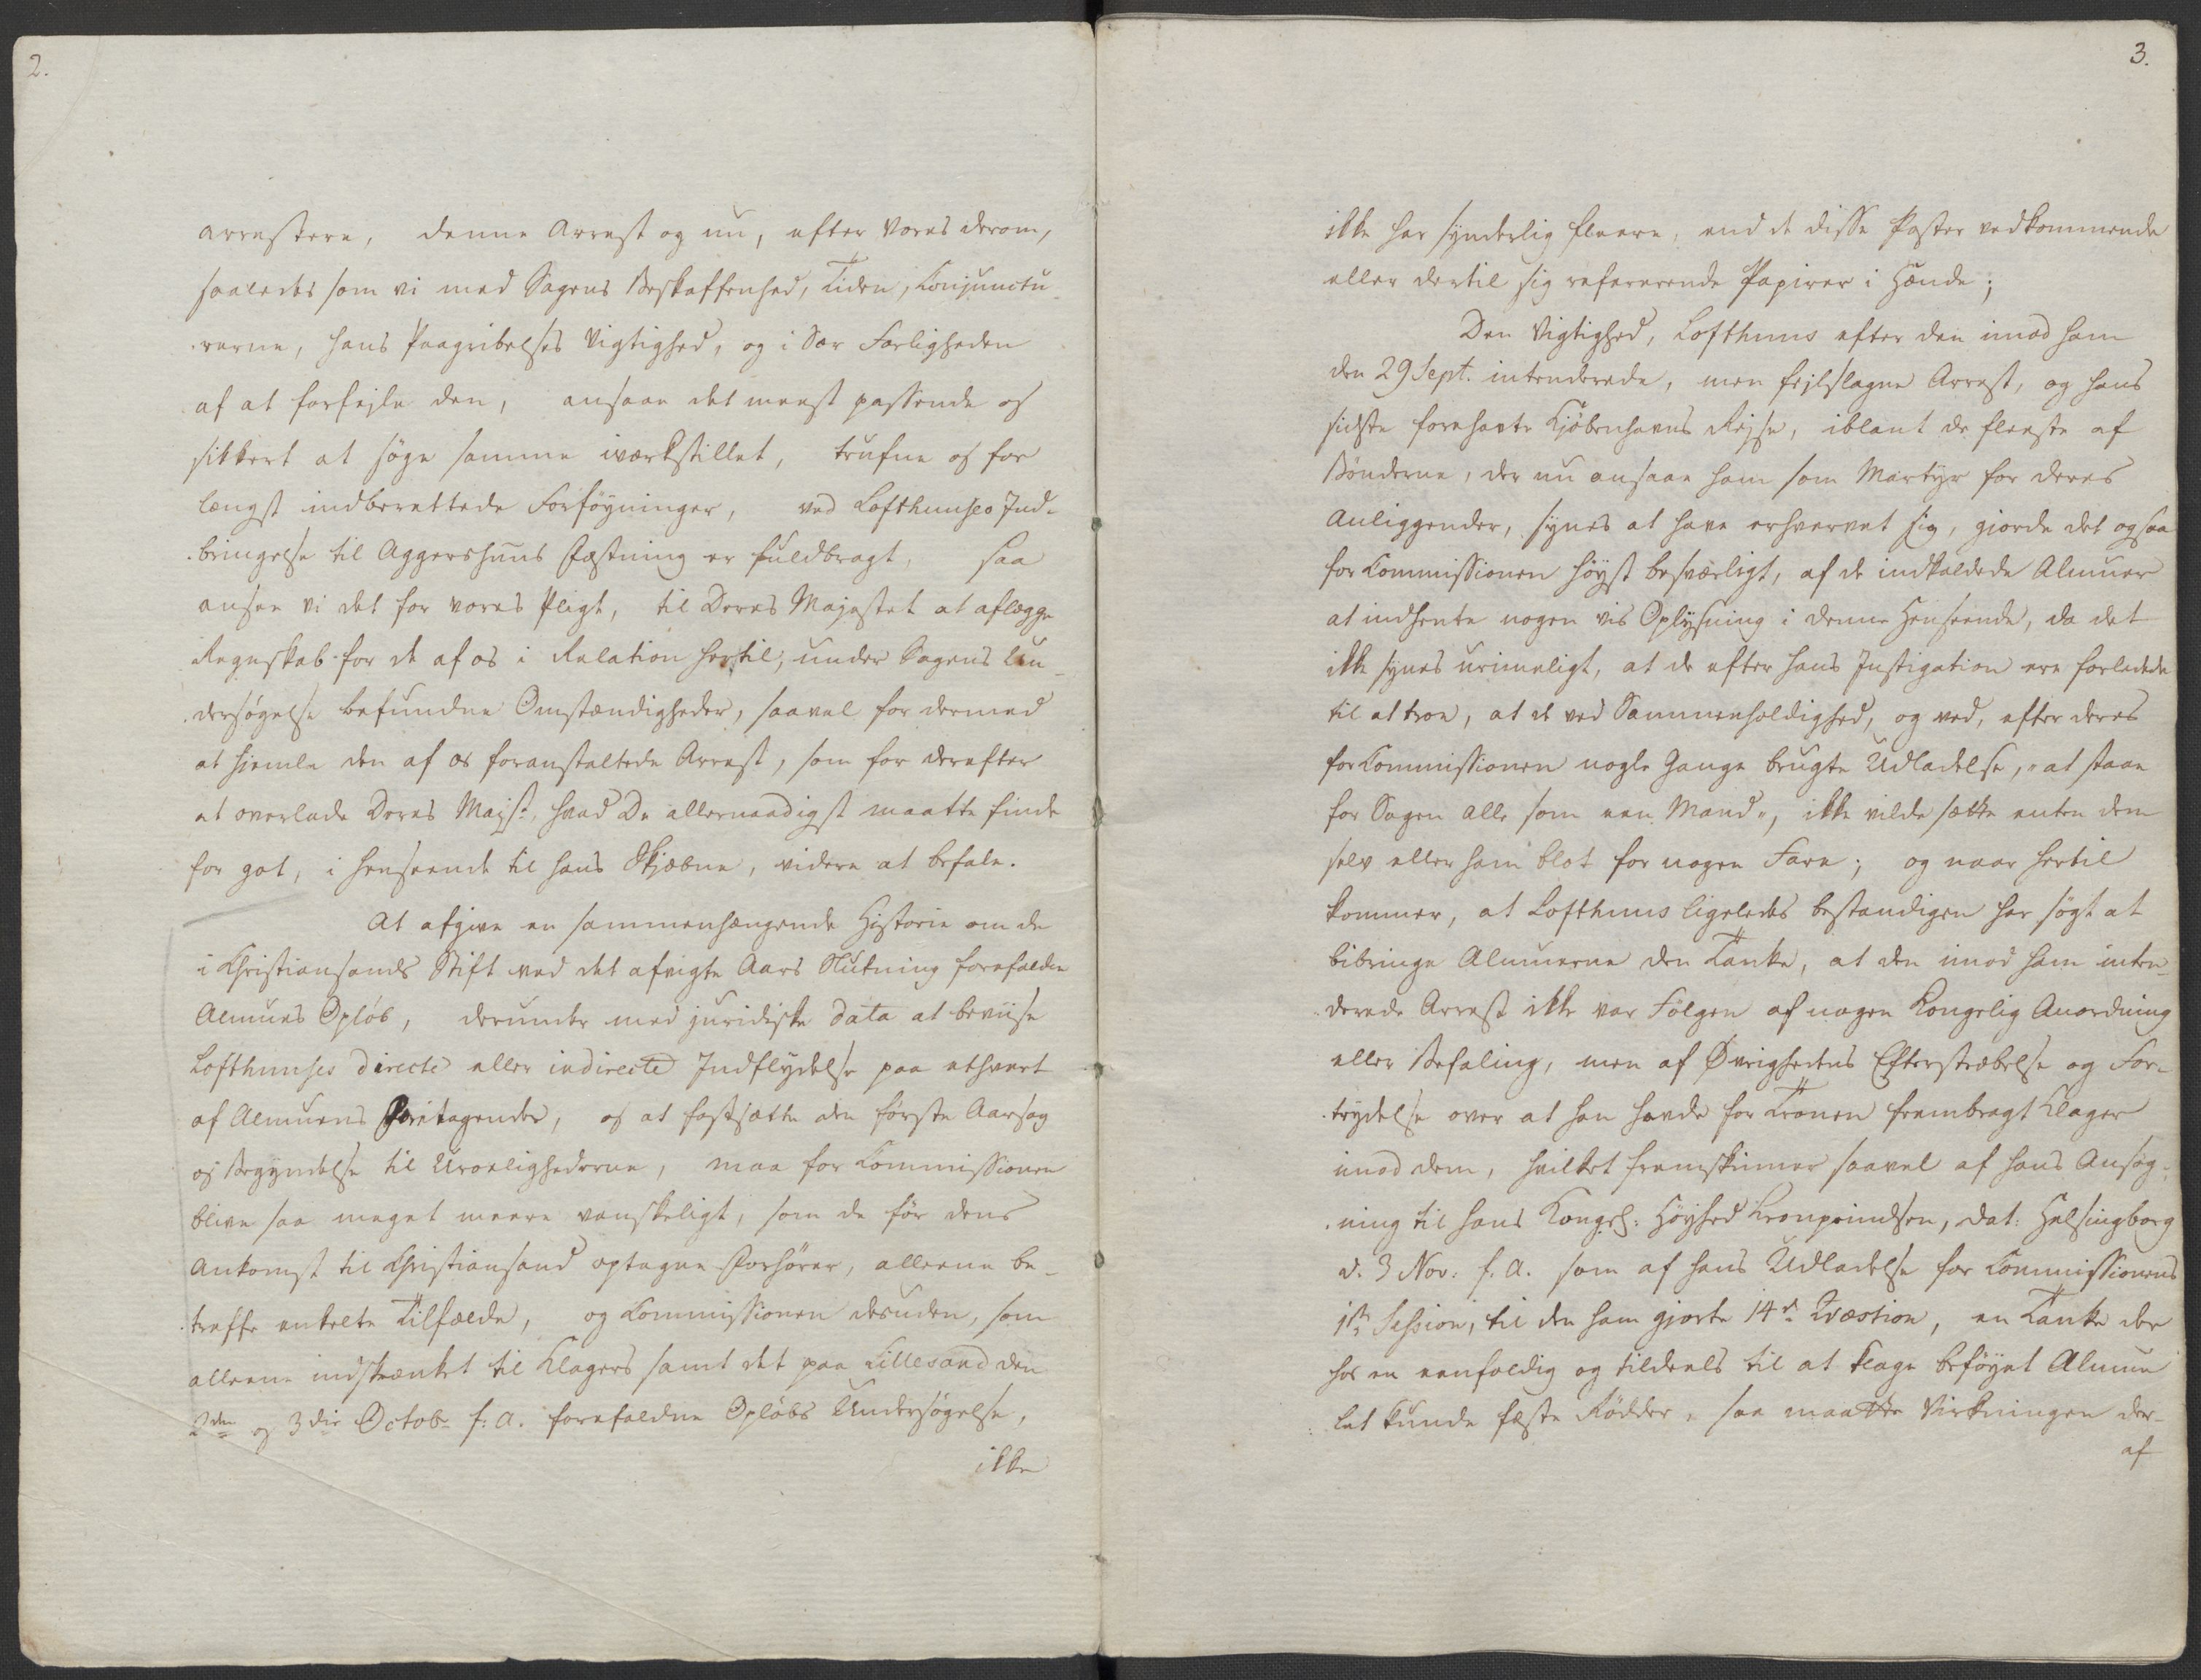 2.
arrestere, denne Arrest og nu, efter vores derom,
saaledes som vi med Sagens Beskaffenhed, Tiden, Conjunctu-
rerne, hans Paagribelses Vigtighed, og i Sær Farligheden
af at forfejle den, ansaae det meest passende og
sikkert at søge samme iværkstillet, trufne og for
længst indberettede Forføyninger, ved Lofthuuses Ind-
bringelse til Aggershuus Fæstning er fuldbragt, saa
ansee vi det for vores Pligt, til Deres Majestet at aflægge
Regnskab for de af os i Relation hertil, under Sagens Un-
dersøgelse befundne Omstændigheder, saavel for dermed
at hiemle den af os foranstaltede Arrest, som for derefter
at overlade Deres Majst. hvad De allernaadigst maatte finde
for got, i henseende til hans Skjæbne, videre at befale.
At afgive en sammenhængende Historie om de
i Christiansands Stift ved det afvigte Aars Slutning forefaldne
Almues Opløb, derunder med juridiske data at beviise
Lofthuuses directe eller indirecte Indflydelse paa ethvert
af Almuens Foretagender, og at fastsætte den første Aarsag
og Begyndelse til Uroelighederne, maa for Commissionen
blive saa meget meere vanskeligt, som de før dens
Ankomst til Christiansand optagne Forhører, alleene be-
treffe enkelte Tilfælde, og Commissionen desuden, som
alleene indskrænket til Klagers samt det paa Lillesand den
2den og 3die Octob. f: A. forefaldne Opløbs Undersøgelse,
ikke
3.
ikke har synderlig fleere, end de disse Poster vedkommende
eller dertil sig refererende Papirer i Hænde;
Den Vigtighed, Lofthuus efter den imod ham
den 29 Sept. intenderede, men fejlslagne Arrest, og hans
sidste forehavte Kjøbenhavns Rejse, iblant de fleeste af
Bønderne, der nu ansaae ham som Martyr for deres
Anliggender, synes at have erhvervet sig, gjorde det ogsaa
for Commissionen høyst besværligt, af de indkaldede Almuer
at indhente nogen vis Oplysning i denne Henseende, da det
ikke synes urimeligt, at de efter hans Instigation ere forledede
til at troe, at de ved Sammenholdighed, og ved, efter deres
for Commissionen nogle Gange brugte Udladelse, „at staae
for Sagen alle som een Mand„, ikke vilde sætte enten dem
selv eller ham blot for nogen Fare; og naar hertil
kommer, at Lofthuus ligeledes bestandigen har søgt at
bibringe Almuerne den Tanke, at den imod ham inten-
derede Arrest ikke var Følgen af nogen Kongelig Anordning
eller Befaling, men af Øvrighedens Efterstræbelse og For-
trydelse over at han havde for Tronen frembragt Klager
imod dem, hvilket fremskinner saavel af hans Ansøg-
ning til hans Kongel: Høyhed Kronprindsen, dat: Helsingborg
d. 3 Nov: f. A. som af hans Udladelse for Commissionens
1ste Session, til den ham gjorte 14de Qvæstion, en Tanke der
hos en eenfoldig og tildeels til at klage beføyet Almue
let kunde fæste Rødder, saa maatte Virkningen der-
af